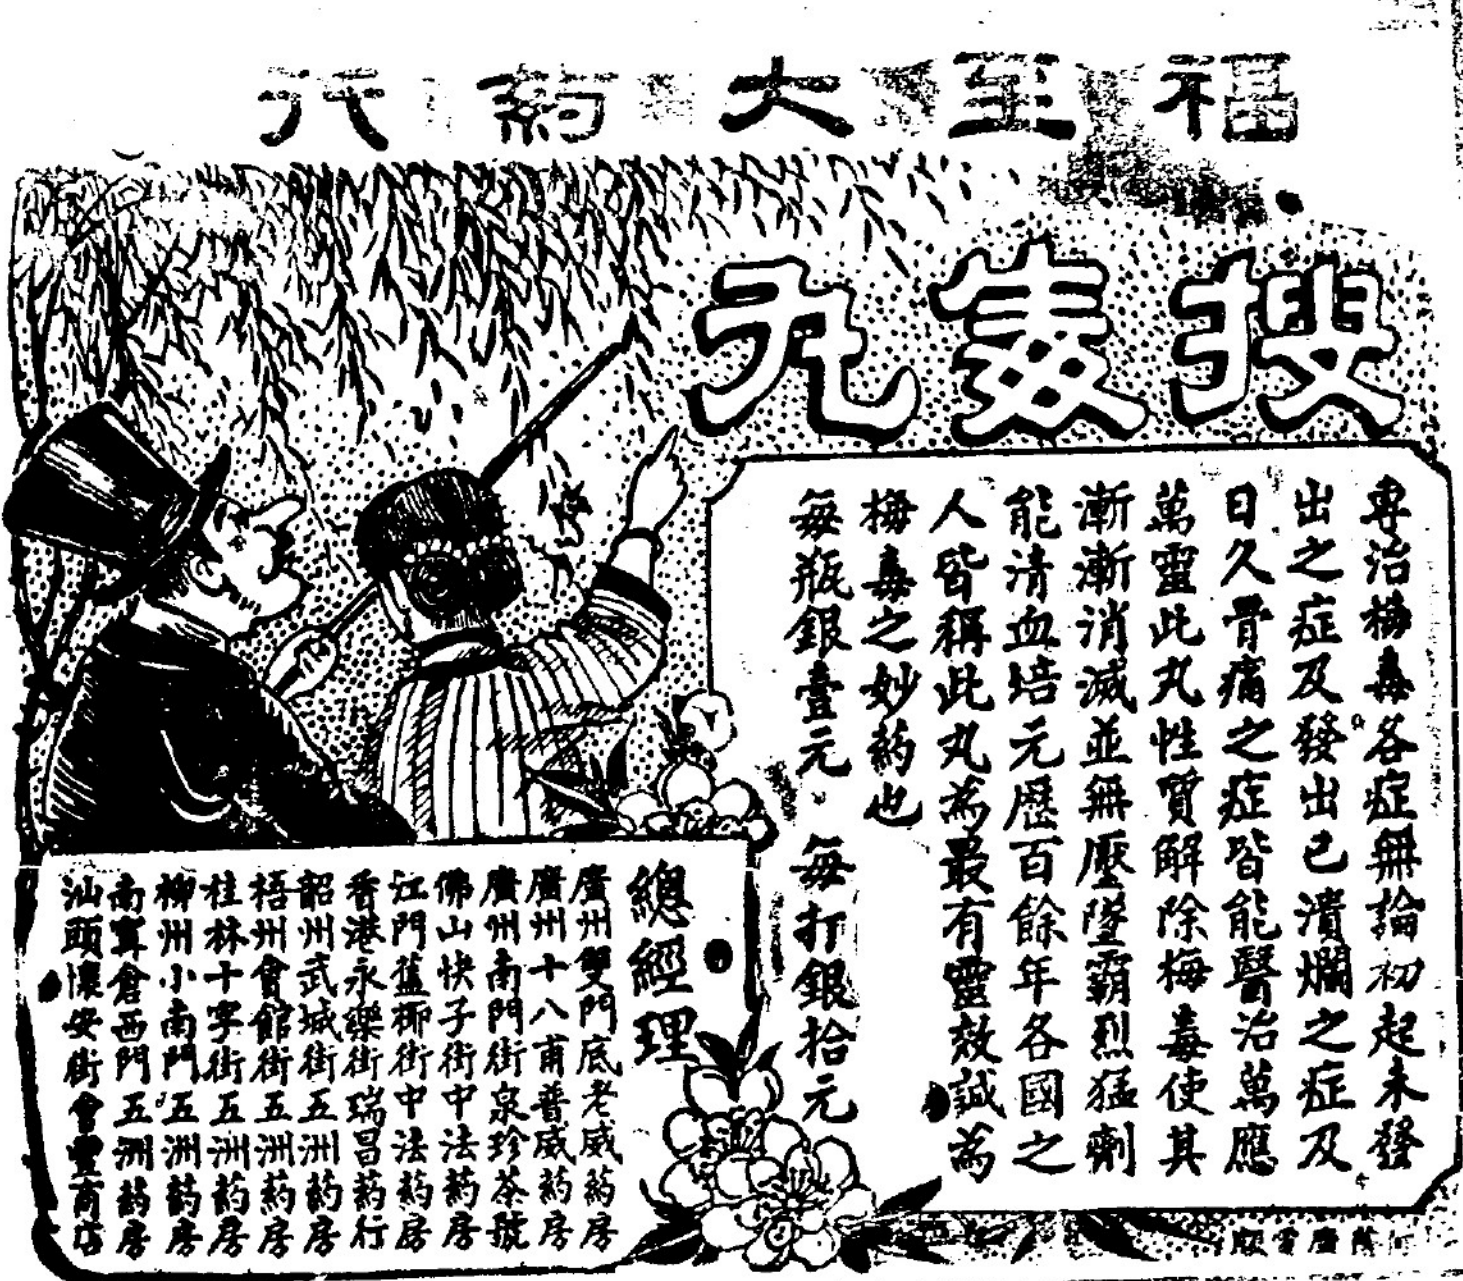 福至大葯行
搜毒丸
專治梅毒各症無論初起未發
出之症及發出已潰爛之症及
日久骨痛之症皆能醫治萬應
萬靈此丸性質解除梅毒使其
漸漸消滅並無壓墜霸烈猛劑
能清血培元歷百餘年各國之
人皆稱此丸為最有靈效誠為
梅毒之妙葯也
每瓶銀壹元 每打銀拾元
總經理
廣州雙門底老威葯房
廣州十八甫普威葯房
廣州南門街泉珍茶號
佛山快子街中法葯房
江門藍椰街中法葯房
香港永樂街瑞昌葯行
韶州武城街五洲葯房
梧州會館街五洲葯房
桂林十字街五洲葯房
柳州小南門五洲葯房
南寧倉西門五洲葯房
汕頭懷安街會豐商店